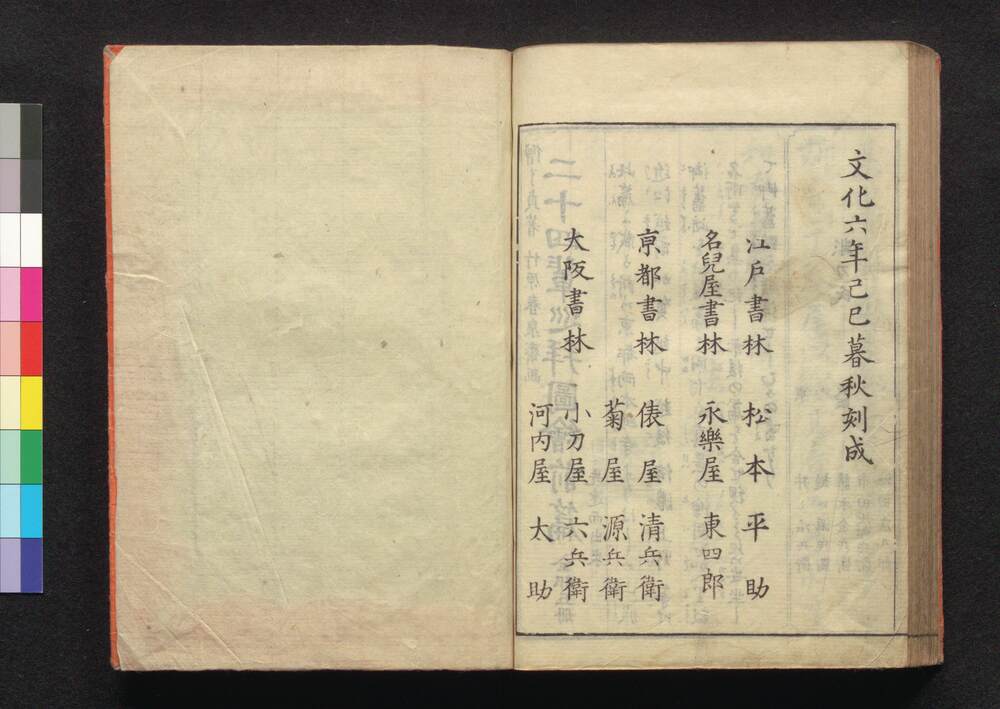 文化六年己巳暮秋刻成
江戸書林 松本平助
名兒屋書林 永樂屋東四郎
京都書林 俵屋清兵衛
菊屋源兵衛
大阪書林 小刀屋六兵衛
河内屋太助